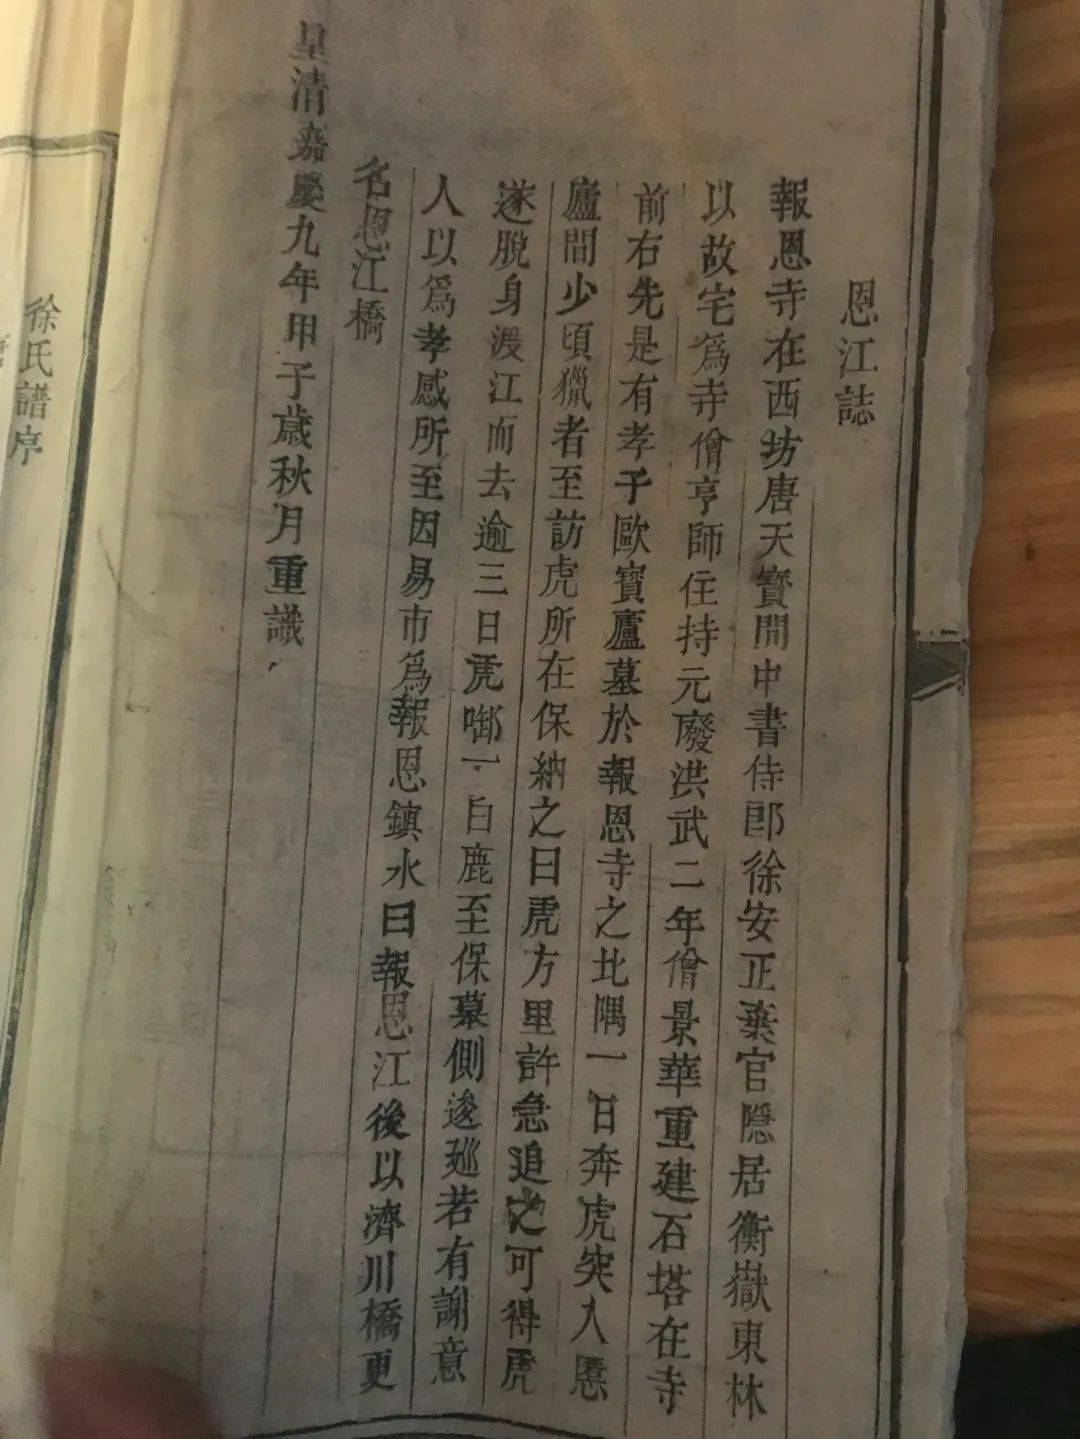 恩江誌
報恩寺在西坊唐天寳間中書侍郎徐安正棄官隱居衡嶽東林
以故宅爲寺僧亨師住持元廢洪武二年僧景華重建石塔在寺
前右先是有孝子歐寳廬墓於報恩寺之北隅一日奔虎突入悪
廬間少頃獵者至訪虎所在保納之曰虎方里許急追之可得虎
遂脫身渡江而去逾三日虎啣一白鹿至保墓側逡廵若有謝意
人以爲孝感所至因易市爲報恩鎮水曰報恩江後以濟川橋更
名恩江橋
皇清嘉慶九年甲子歲秋月重識
徐氏譜序